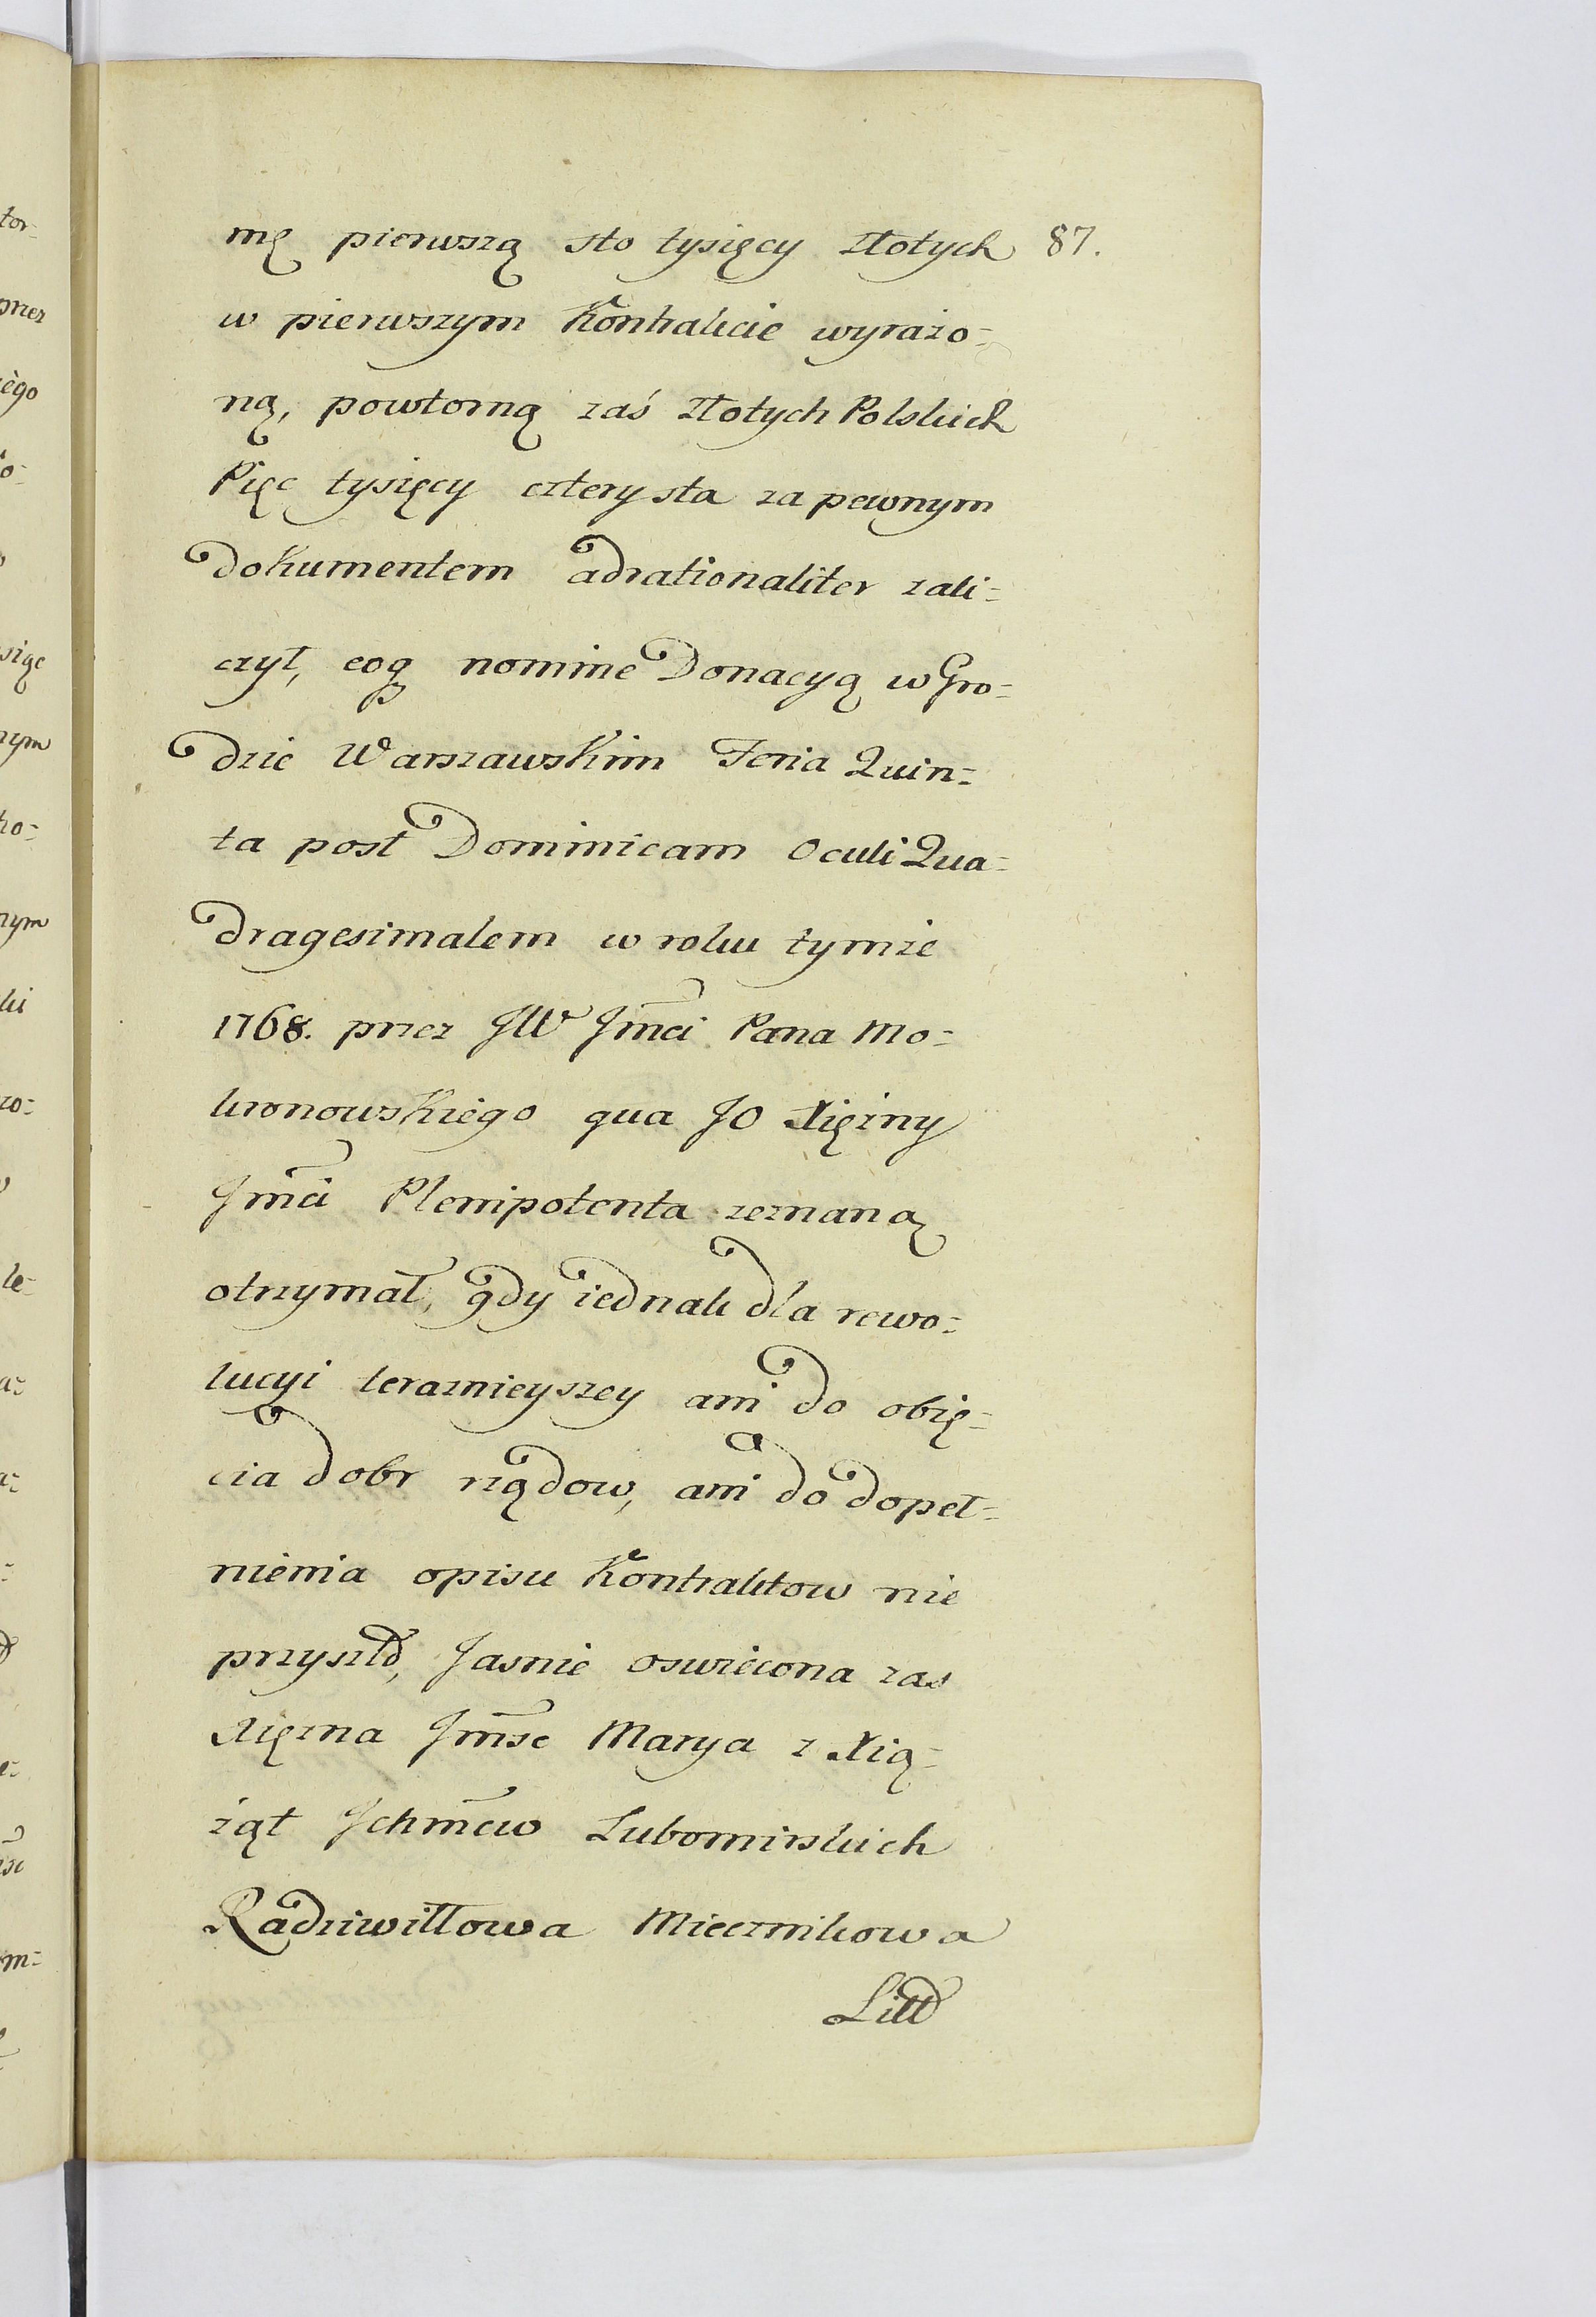 mę pierwszą sto tysięcy złotych 87.
w pierwszym Kontrakcie wyrażo=
ną, powtorną zaś złotych Polskich
Pięc tysięcy czterysta za pewnym
dokumentem adrationaliter zali=
czył, eoq nomine Donacyą w Gro=
dzie Warszawskim Feria Quin=
ta post Dominicam Oculi Qua=
dragesimalem w roku tymze
1768. przez JW Jmci Pana Mo=
kronowskiego qua JO Xięzny
Jmci Plenipotenta zeznaną
otrzymał, gdy iednak dla rewo=
lucyi teraznieyszey ani do obię=
cia dobr rządow, ani do dopeł=
nienia opisu Kontraktow nie
przyszło, Jasnie oswiecona zas
Xięzna Jmsc Marya z Xią=
żąt Jchmcw Lubomirskich
Radziwiłłowa Miecznikowa
Litto